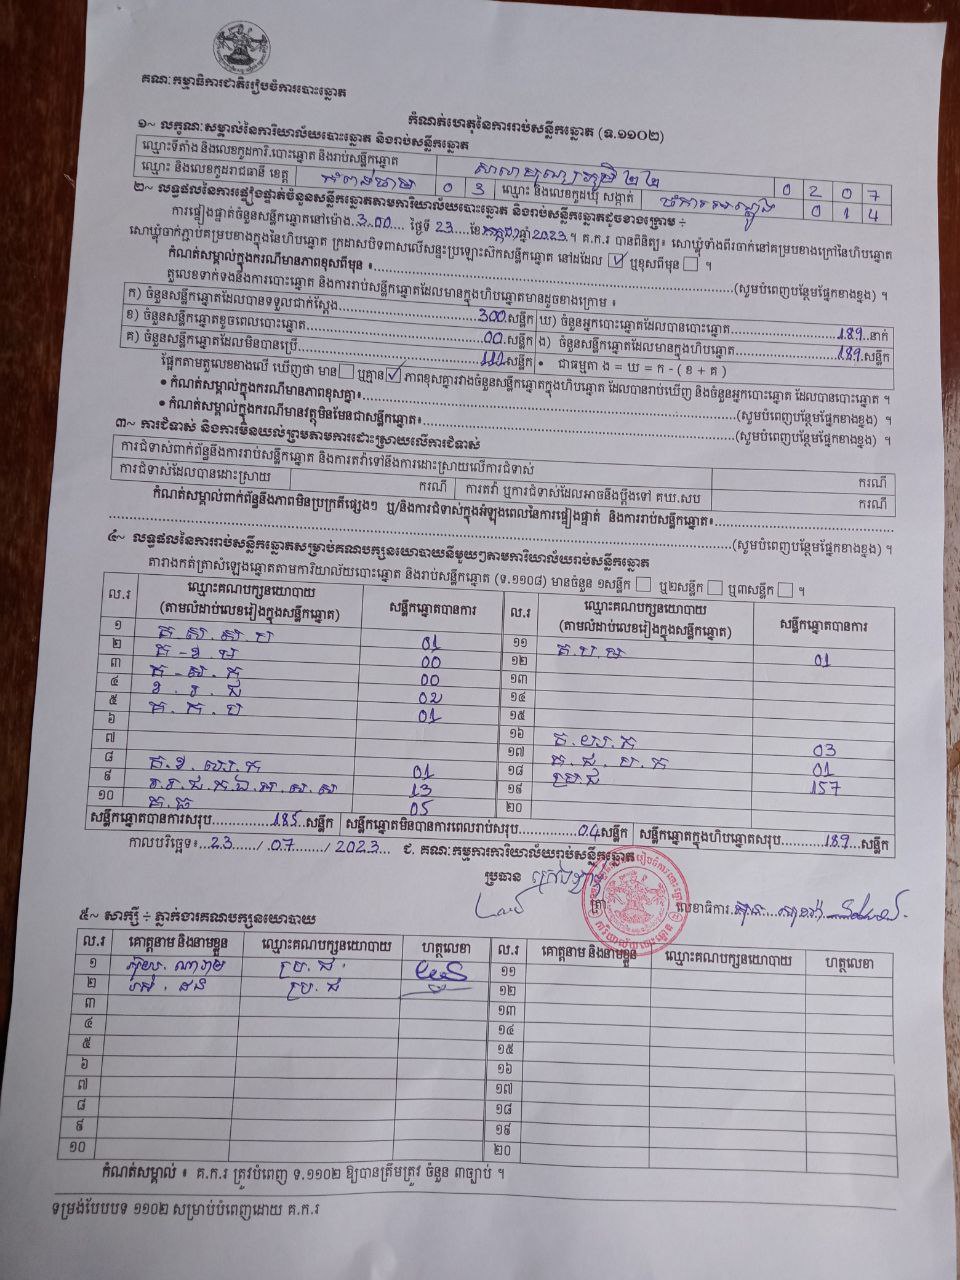 គណៈកម្មាធិការជាតិរៀបចំការបោះឆ្នោត
កំណត់ហេតុនៃការរាប់សន្លឹកឆ្នោត (ទ.១១០២)
១~ លក្ខណៈសម្គាល់នៃការិយាល័យបោះឆ្នោត និងរាប់សន្លឹកឆ្នោត
ឈ្មោះទីតាំង និងលេខកូដការិ.បោះឆ្នោត និងរាប់សន្លឹកឆ្នោត 0 2 0 7
ឈ្មោះ និងលេខកូដរាជធានី ខេត្ត កំពង់ចាម 0 3 ឈ្មោះ និងលេខកូដឃុំ សង្កាត់ 0 1 4
២~ លទ្ធផលនៃការផ្ទៀងផ្ទាត់ចំនួនសន្លឹកឆ្នោតតាមការិយាល័យបោះឆ្នោត និងរាប់សន្លឹកឆ្នោតដូចខាងក្រោម ÷
ការផ្ទៀងផ្ទាត់ចំនួនសន្លឹកឆ្នោតនៅម៉ោង 3.00 ថ្ងៃទី 23 ខែ កក្កដា ឆ្នាំ 2023 ។ គ.ក.រ បានពិនិត្យ៖ សោឃ្លុំទាំងពីរចាក់នៅគម្របខាងក្រៅនៃហិបឆ្នោត
សោឃ្លុំចាក់ភ្ជាប់គម្របខាងក្នុងនៃហិបឆ្នោត ក្រដាសបិទពាសលើសន្ទះប្រឡោះស៊កសន្លឹកឆ្នោត នៅដដែល ✓ ឬខុសពីមុន ។
កំណត់សម្គាល់ក្នុងករណីមានភាពខុសពីមុន ៖ (សូមបំពេញបន្ថែមផ្នែកខាងខ្នង) ។
តួលេខទាក់ទងនឹងការបោះឆ្នោត និងការរាប់សន្លឹកឆ្នោតដែលមានក្នុងហិបឆ្នោតមានដូចខាងក្រោម ៖
ក) ចំនួនសន្លឹកឆ្នោតដែលបានទទួលជាក់ស្តែង 300 សន្លឹក ឃ) ចំនួនអ្នកបោះឆ្នោតដែលបានបោះឆ្នោត 189 នាក់
ខ) ចំនួនសន្លឹកឆ្នោតខូចពេលបោះឆ្នោត 00 សន្លឹក ង) ចំនួនសន្លឹកឆ្នោតដែលមានក្នុងហិបឆ្នោត 189 សន្លឹក
គ) ចំនួនសន្លឹកឆ្នោតដែលមិនបានប្រើ 111 សន្លឹក • ជាធម្មតា ង = ឃ = ក - ( ខ + គ )
ផ្អែកតាមតួលេខខាងលើ ឃើញថា មាន ឬគ្មាន ✓ ភាពខុសគ្នារវាងចំនួនសន្លឹកឆ្នោតក្នុងហិបឆ្នោត ដែលបានរាប់ឃើញ និងចំនួនអ្នកបោះឆ្នោត ដែលបានបោះឆ្នោត ។
• កំណត់សម្គាល់ក្នុងករណីមានភាពខុសគ្នា៖ (សូមបំពេញបន្ថែមផ្នែកខាងខ្នង) ។
• កំណត់សម្គាល់ក្នុងករណីមានវត្ថុមិនមែនជាសន្លឹកឆ្នោត៖ (សូមបំពេញបន្ថែមផ្នែកខាងខ្នង) ។
៣~ ការជំទាស់ និងការមិនយល់ព្រមតាមការដោះស្រាយលើការជំទាស់
ការជំទាស់ពាក់ព័ន្ធនឹងការរាប់សន្លឹកឆ្នោត និងការតវ៉ាទៅនឹងការដោះស្រាយលើការជំទាស់ ករណី
ការជំទាស់ដែលបានដោះស្រាយ ករណី ការតវ៉ា ឬការជំទាស់ដែលអាចនឹងប្តឹងទៅ គឃ.សប ករណី
កំណត់សម្គាល់ពាក់ព័ន្ធនឹងភាពមិនប្រក្រតីផ្សេងៗ ឬ/និងការជំទាស់ក្នុងអំឡុងពេលនៃការផ្ទៀងផ្ទាត់ និងការរាប់សន្លឹកឆ្នោត៖
(សូមបំពេញបន្ថែមផ្នែកខាងខ្នង) ។
៤~ លទ្ធផលនៃការរាប់សន្លឹកឆ្នោតសម្រាប់គណបក្សនយោបាយនីមួយៗតាមការិយាល័យរាប់សន្លឹកឆ្នោត
តារាងកត់ត្រាសំឡេងឆ្នោតតាមការិយាល័យបោះឆ្នោត និងរាប់សន្លឹកឆ្នោត (ទ.១១០៨) មានចំនួន ១សន្លឹក ឬ២សន្លឹក ឬ៣សន្លឹក ។
ល.រ ឈ្មោះគណបក្សនយោបាយ (តាមលំដាប់លេខរៀងក្នុងសន្លឹកឆ្នោត) សន្លឹកឆ្នោតបានការ ល.រ ឈ្មោះគណបក្សនយោបាយ (តាមលំដាប់លេខរៀងក្នុងសន្លឹកឆ្នោត) សន្លឹកឆ្នោតបានការ
១ គ.ស.ស.ប 01 ១១ គ.ប.ម 01
២ គ-ខ.ម 00 ១២
៣ គ-ស.ក 00 ១៣
៤ ខ.រ.ជ 02 ១៤
៥ គ.ក.ប 01 ១៥
៦ ១៦ គ.យ.ក 03
៧ ១៧ 01
៨ 01 ១៨ ប្រ.ជ 157
៩ 13 ១៩
១០ គ.ធ 05 ២០
សន្លឹកឆ្នោតបានការសរុប 185 សន្លឹក សន្លឹកឆ្នោតមិនបានការពេលរាប់សរុប 04 សន្លឹក សន្លឹកឆ្នោតក្នុងហិបឆ្នោតសរុប 189 សន្លឹក
កាលបរិច្ឆេទ៖ 23 / 07 / 2023 ជ. គណៈកម្មការការិយាល័យរាប់សន្លឹកឆ្នោត
ប្រធាន
ត្រា លេខាធិការ
៥~ សាក្សី ÷ ភ្នាក់ងារគណបក្សនយោបាយ
ល.រ គោត្តនាម និងនាមខ្លួន ឈ្មោះគណបក្សនយោបាយ ហត្ថលេខា ល.រ គោត្តនាម និងនាមខ្លួន ឈ្មោះគណបក្សនយោបាយ ហត្ថលេខា
១ ប្រ.ជ ១១
២ ប្រ.ជ ១២
៣ ១៣
៤ ១៤
៥ ១៥
៦ ១៦
៧ ១៧
៨ ១៨
៩ ១៩
១០ ២០
កំណត់សម្គាល់ ៖ គ.ក.រ ត្រូវបំពេញ ទ.១១០២ ឱ្យបានត្រឹមត្រូវ ចំនួន ៣ច្បាប់ ។
ទម្រង់បែបបទ ១១០២ សម្រាប់បំពេញដោយ គ.ក.រ